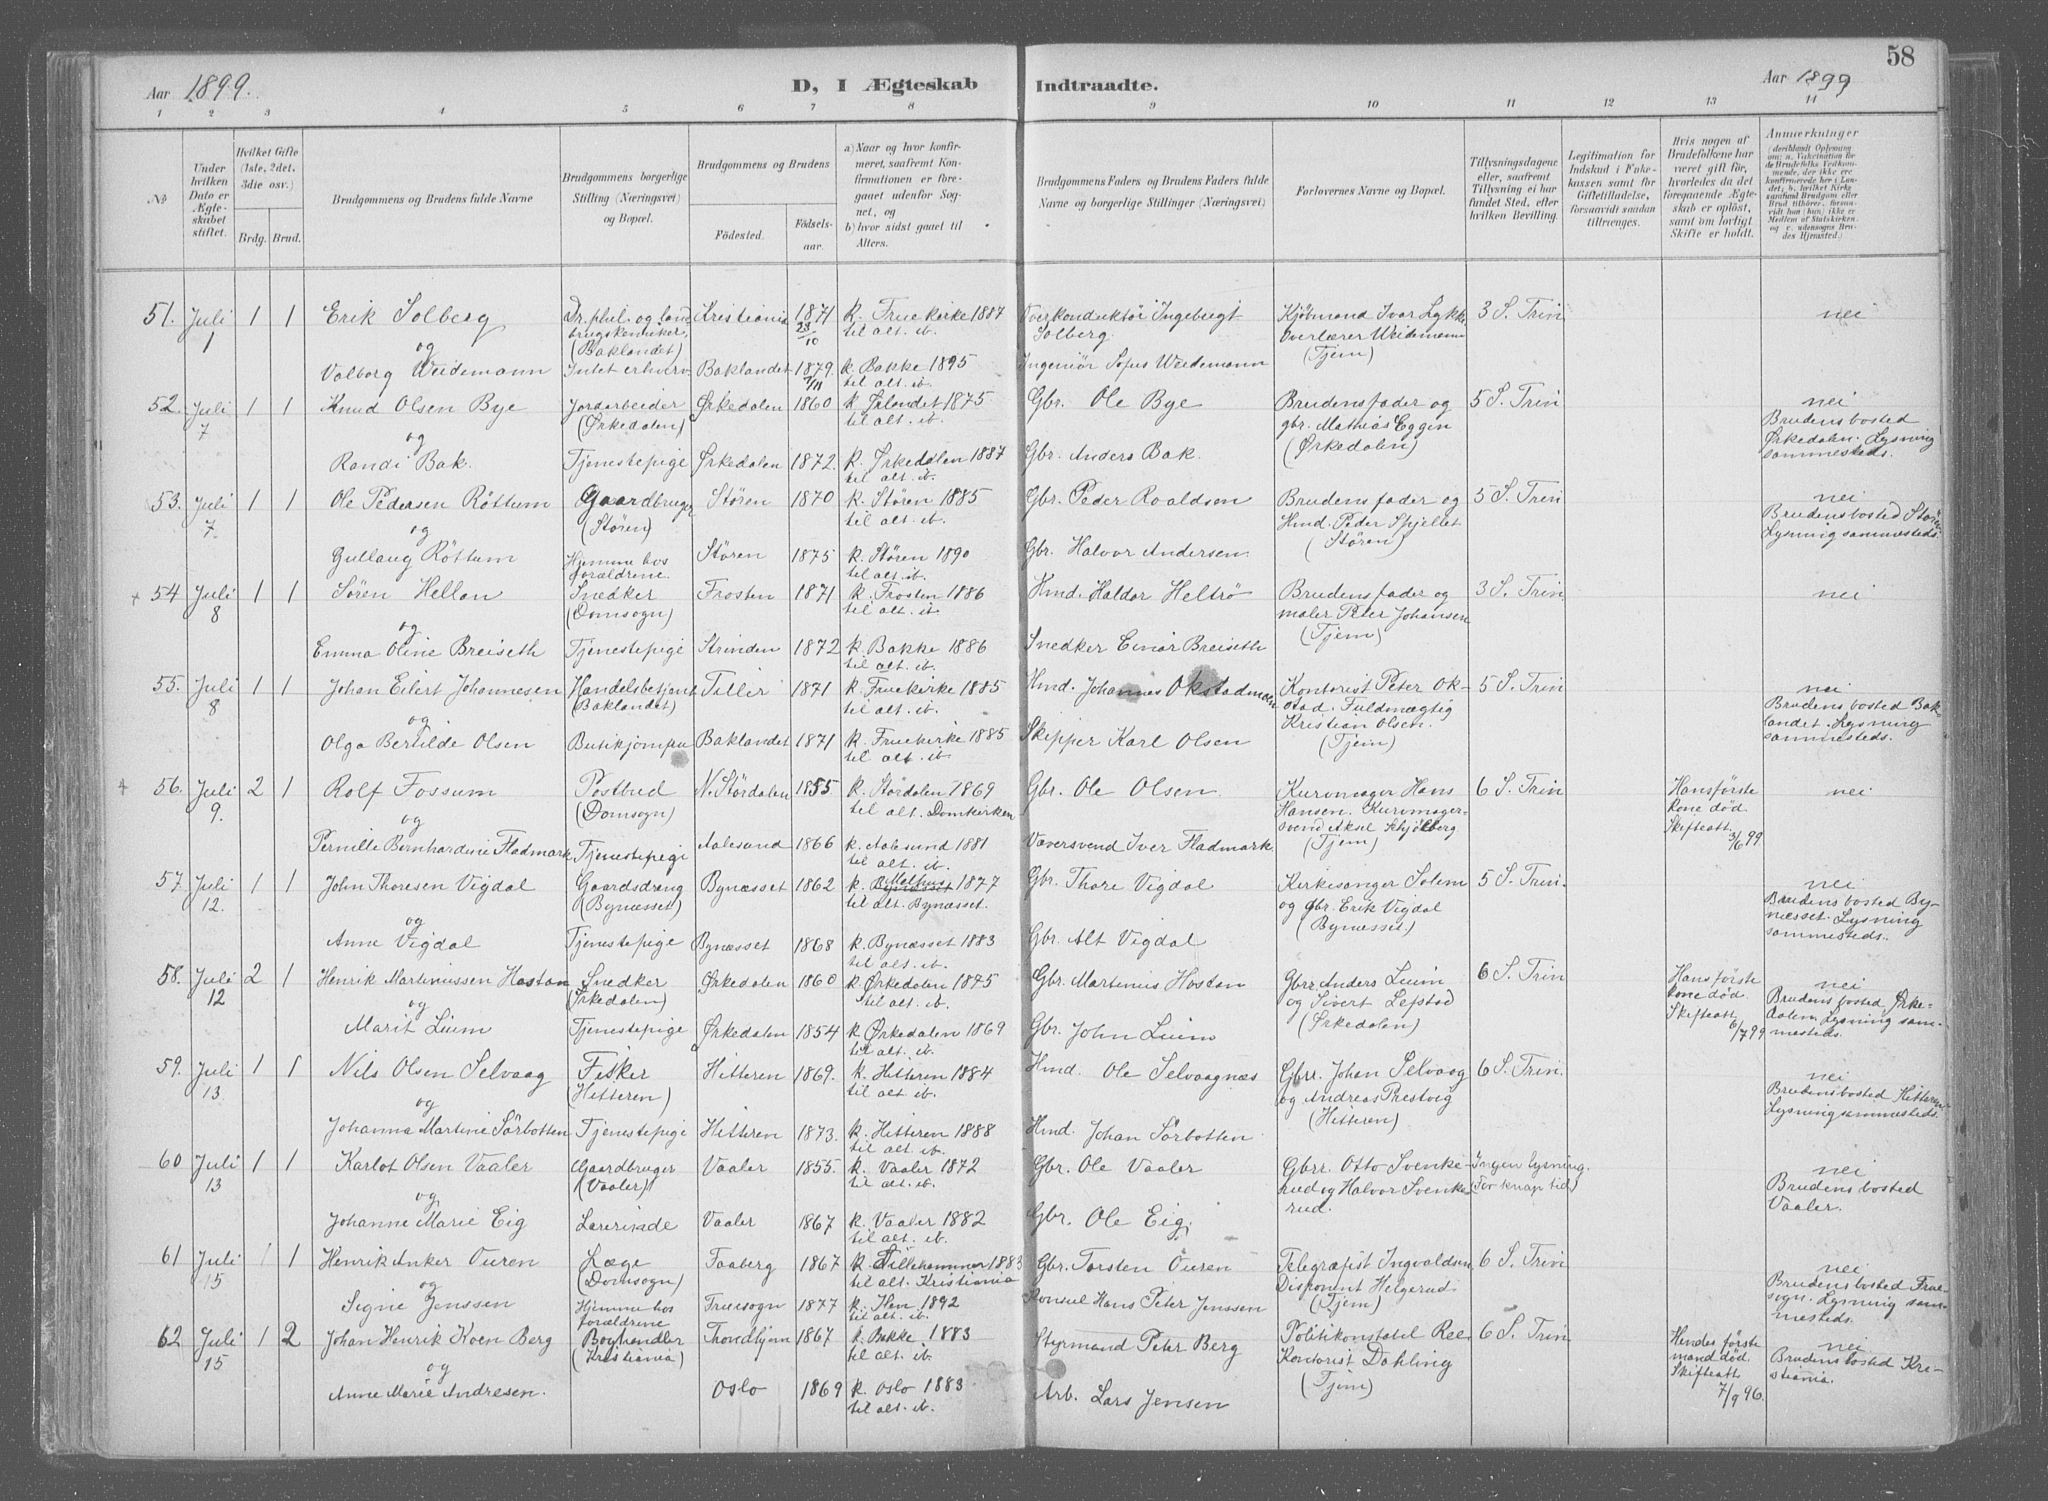 58
Aar 1899. D, I Ægteskab Indtraadte. Aar 1899
1 2 3 4 5 6 7 8 9 10 11 12 13 14
№
Under hvilken Dato er Ægteskabet stiftet.
Hvilket Gifte (1ste, 2det, 3die osv.)
Brdg. Brud.
Brudgommens og Brudens fulde Navne
Brudgommens borgerlige Stilling (Næringsvei) og Bopæl.
Brudgommens og Brudens
Fødested. Fødselsaar.
a) Naar og hvor konfirmeret, saafremt Konfirmationen er foregaaet udenfor Sognet, og
b) hvor sidst gaaet til Alters.
Brudgommens Faders og Brudens Faders fulde Navne og borgerlige Stillinger (Næringsvei)
Forlovernes Navne og Bopæl.
Tillysningsdagene eller, saafremt Tillysning ei har fundet Sted, efter hvilken Bevilling.
Legitimation for Indskud i Enkekassen samt for Giftetilladelse, forsaavidt saadan tiltrænges.
Hvis nogen af Brudefolkene har været gift før, hvorledes da det foregaaende Ægteskab er opløst, samt om lovligt Skifte er holdt.
Anmerkninger
51. Juli 1 1 1 Erik Solberg Dr. phil. og landbrugskemiker, (Baklandet) Kristiania 1871 23/10 k. Fruekirke 1887 til alt. ib. Overkonduktør Ingebrigt Solberg. Kjøbmand Ivar Lykke Overlærer Weidemann (Tjem) 3 S. Trin nei
og
Valborg Weidemann Intet erhverv. Baklandet 1879. 7/11 k. Bakke 1895 til alt. ib. Ingeniør Sofus Weidemann
52. Juli 7 1 1 Knud Olsen Bye Jordarbeider (Ørkedalen) Ørkedalen 1860 k. Ørlandet 1875 til alt. ib. Gbr. Ole Bye Brudens fader og gbr. Mathias Eggen (Ørkedalen) 5 S. Trin nei Brudens bosted Ørkedalen. Lysning sammesteds.
og
Randi Bak. Tjenestepige Ørkedalen 1872. k. Ørkedalen 1887 til alt. ib. Gbr. Anders Bak.
53. Juli 7. 1 1 Ole Pedersen Röttum Gaardbruger (Støren) Støren 1870 k. Støren 1885 til alt. ib. Gbr. Peder Roaldsen Brudens fader og Hmd. Peder Spjellet (Støren) 5 S. Trin nei Brudens bosted Støren. Lysning sammesteds.
og
Gullaug Röttum Hjemme hos forældrene. Støren 1875 k. Støren 1890 til alt. ib. Gbr. Halvor Andersen
54 Juli 8 1 1 Søren Hellan Snedker (Domsogn) Frosten 1871 k. Frosten 1886 til alt. ib. Hmd. Haldor Heltrö Brudens fader og maler Peter Johansen (Tjem) 3 S. Trin nei
og
Emma Oline Breiseth Tjenestepige Strinden 1872 k. Bakke 1886 til alt. ib. Snedker Einar Breiseth
55. Juli 8 1 1 Johan Eilert Johannesen Handelsbetjent (Baklandet) Tiller 1871 k. Fruekirke 1885 til alt. ib. Hmd. Johannes Okstadmoen Kontorist Peter Okstad. Fuldmægtig Kristian Olsen. (Tjem) 5 S. Trin nei Brudens bosted Baklandet. Lysning sammesteds.
og
Olga Bertilde Olsen Butikjomfru Baklandet 1871 k. Fruekirke 1885 til alt. ib. Skipper Karl Olsen
56. Juli 9. 2 1 Rolf Fossum Postbud (Domsogn) N. Stördalen 1855 k. Stördalen 1869 til alt. Domkirken Gbr. Ole Olsen Kurvmager Hans Hansen. Kurvmagersvend Aksel Schjølberg (Tjem) 6 S. Trin Hans første kone død Skifteatt. 3/6 99 nei
og
Pernille Bernhardine Fladmark Tjenestepige Aalesund 1866 k. Aalesund 1881 til alt. ib. Væversvend Iver Fladmark
57. Juli 12. 1 1 John Thoresen Vigdal Gaardsdreng (Bynæsset) Bynæsset 1862 k. Melhus 1877 til alt. Bynæsset. Gbr. Thore Vigdal Kirkesanger Solem og gbr. Erik Vigdal (Bynæsset) 5 S. Trin. nei Brudens bosted Bynæsset. Lysning sammesteds.
og
Anne Vigdal Tjenestepige Bynæsset 1868 k. Bynæsset 1883 til alt. ib. Gbr. Alt Vigdal
58. Juli 12 2 1 Henrik Martinussen Hoston Snedker (Ørkedalen) Ørkedalen 1860 k. Ørkedalen 1875 til alt. ib. Gbr. Martenius Hoston Gbrr. Anders Lium og Sivert Lefstad (Ørkedalen) 6 S. Trin Hans første kone død. Skifteatt 6/7 99 nei Brudens bosted Ørkedalen. Lysning sammesteds.
og
Marit Lium Tjenestepige Ørkedalen 1854 k. Ørkedalen 1869 til alt. ib. Gbr. John Lium
59. Juli 13. 1 1 Nils Olsen Selvaag Fisker (Hitteren) Hitteren 1869. k. Hitteren 1884 til alt. ib. Hmd. Ole Selvaagnæs Gbrr. Johan Selvaag og Andreas Prestvig (Hitteren) 6 S. Trin. nei Brudens bosted Hitteren. Lysning sammesteds.
og
Johanna Martine Sörbotten Tjenestepige Hitteren 1873. k. Hitteren 1888 til alt. ib. Hmd. Johan Sörbotten
60 Juli 13 1 1 Karlot Olsen Vaaler Gaardbruger (Vaaler) Vaaler 1855. k. Vaaler 1872 til alt. ib. Gbr. Ole Vaaler Gbrr. Otto Svenkerud og Halvor Svenkerud. Ingen lysning. (For knap tid) nei Brudens bosted Vaaler.
og
Johanne Marie Eig Lærerinde Vaaler 1867 k. Vaaler 1882 til alt. ib. Gbr. Ole Eig.
61 Juli 15 1 1 Henrik Anker Ouren Læge (Domsogn) Faaberg 1867 k. Lillehammer 1883 til alt. Kristiania Gbr. Torsten Ouren Telegrafist Ingvaldsen Disponent Helgerud (Tjem) 6 S. Trin nei Brudens bosted Fruesogn. Lysning sammesteds.
og
Signe Jenssen Hjemme hos forældrene Fruesogn 1877 k. Ilen 1892 til alt. ib. Konsul Hans Peter Jenssen
62 Juli 15 1 2 Johan Henrik Koen Berg Boghandler (Kristiania) Trondhjem 1867 k. Bakke 1883 til alt. ib. Styrmand Peter Berg Politikonstabel Ree Kontorist Dahling (Tjem) 6 S. Trin Hendes første mand død. Skifteatt 7/9 96. nei Brudens bosted Kristiania.
og
Anne Marie Andresen. Oslo 1869 k. Oslo 1883 til alt. ib. Arb. Lars Jensen